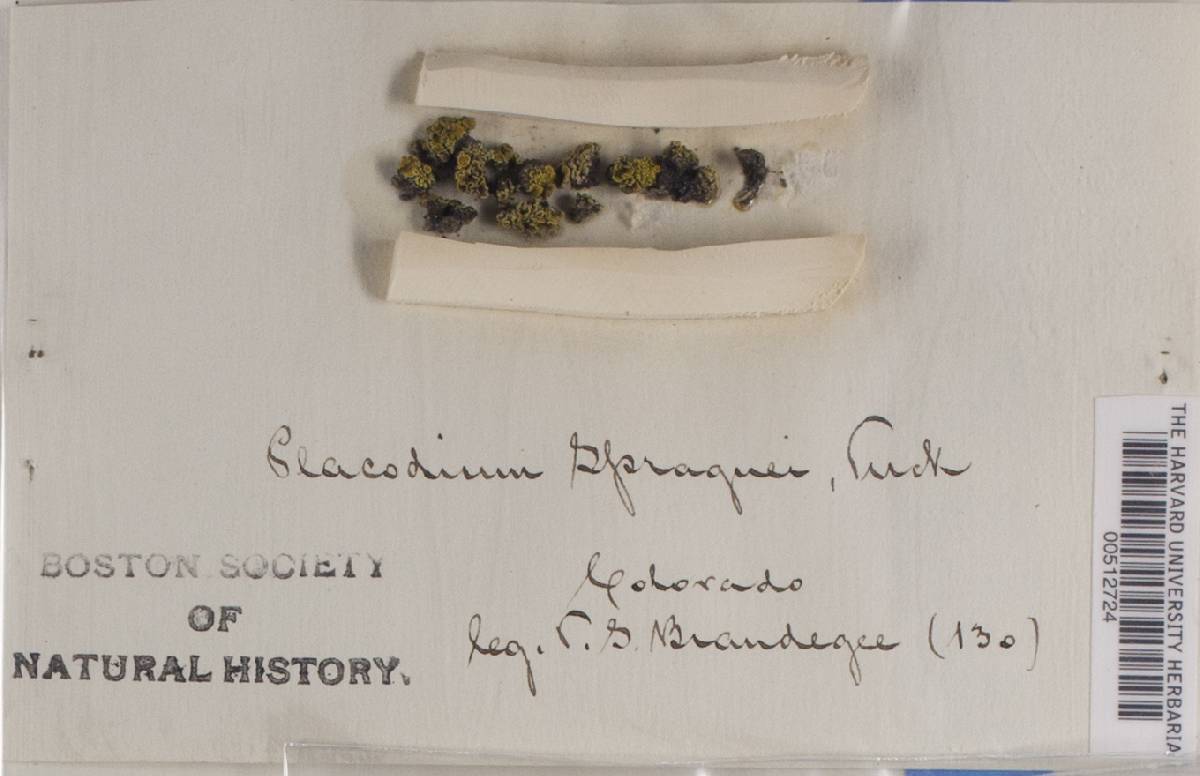 Placodium Spraguei, Tuck
Colorado
leg. T. S. Brandegee (130)
BOSTON SOCIETY
OF
NATURAL HISTORY.
THE HARVARD UNIVERSITY HERBARIA
00512724